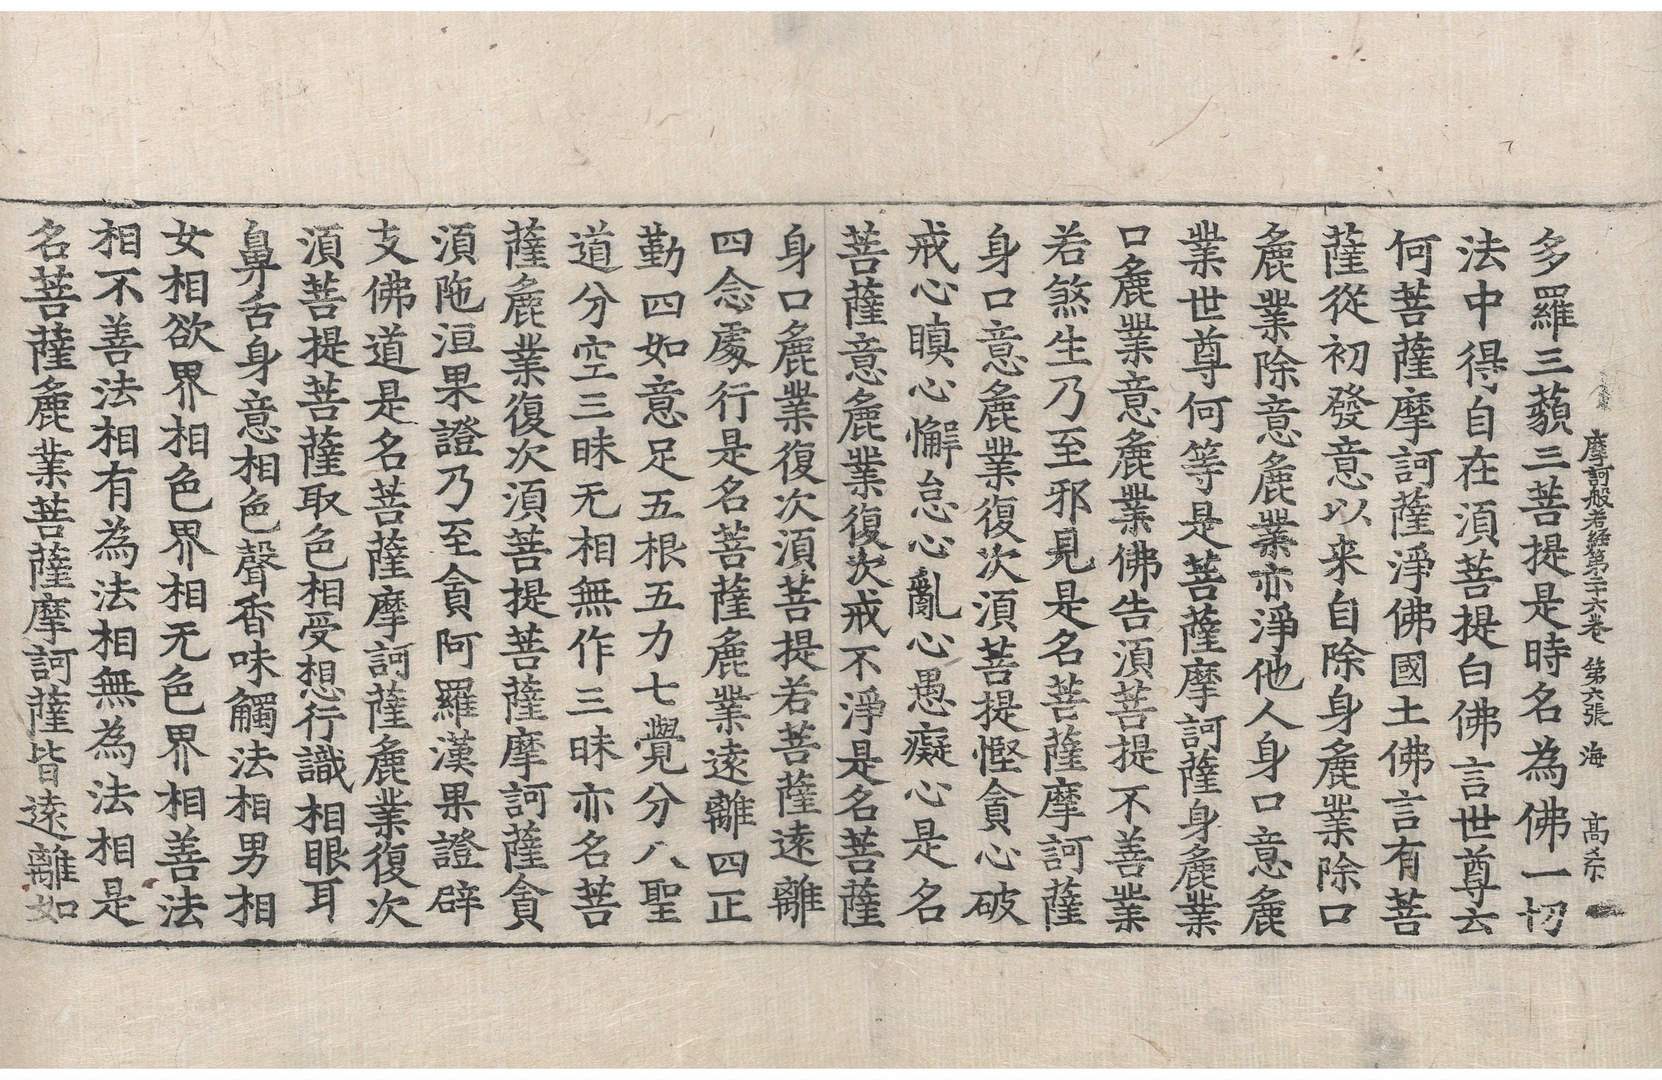 摩訶般若経第二十六巻 第六張 海 高希
多羅三藐三菩提是時名為佛一切
法中得自在湏菩提白佛言世尊云
何菩薩摩訶薩淨佛國土佛言有菩
薩從初發意以来自除身麁業除口
麁業除意麁業亦淨他人身口意麁
業世尊何等是菩薩摩訶薩身麁業
口麁業意麁業佛告湏菩提不善業
若煞生乃至邪見是名菩薩摩訶薩
身口意麁業復次湏菩提慳貪心破
戒心瞋心懈怠心亂心愚癡心是名
菩薩意麁業復次戒不淨是名菩薩
身口麁業復次湏菩提若菩薩遠離
四念處行是名菩薩麁業遠離四正
勤四如意足五根五力七覺分八聖
道分空三昧无相無作三昧亦名菩
薩麁業復次湏菩提菩薩摩訶薩貪
湏陁洹果證乃至貪阿羅漢果證辟
支佛道是名菩薩摩訶薩麁業復次
湏菩提菩薩取色相受想行識相眼耳
鼻舌身意相色聲香味觸法相男相
女相欲界相色界相无色界相善法
相不善法相有為法相無為法相是
名菩薩麁業菩薩摩訶薩皆遠離如